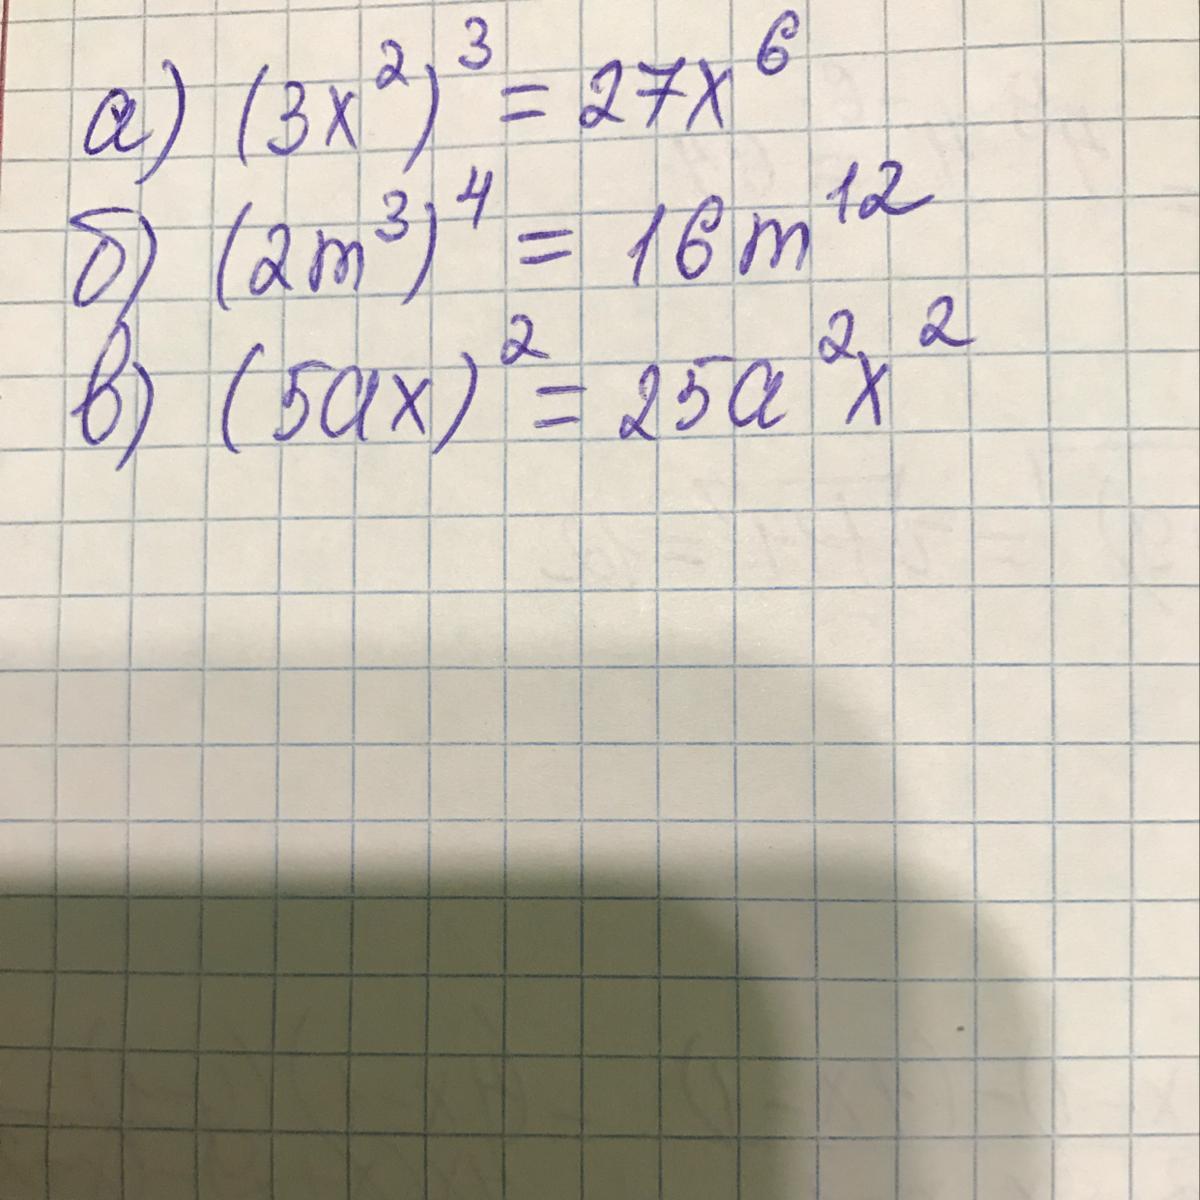 а) (3x²)³ = 27x⁶
б) (2m³)⁴ = 16m¹²
в) (5ax)² = 25a²x²